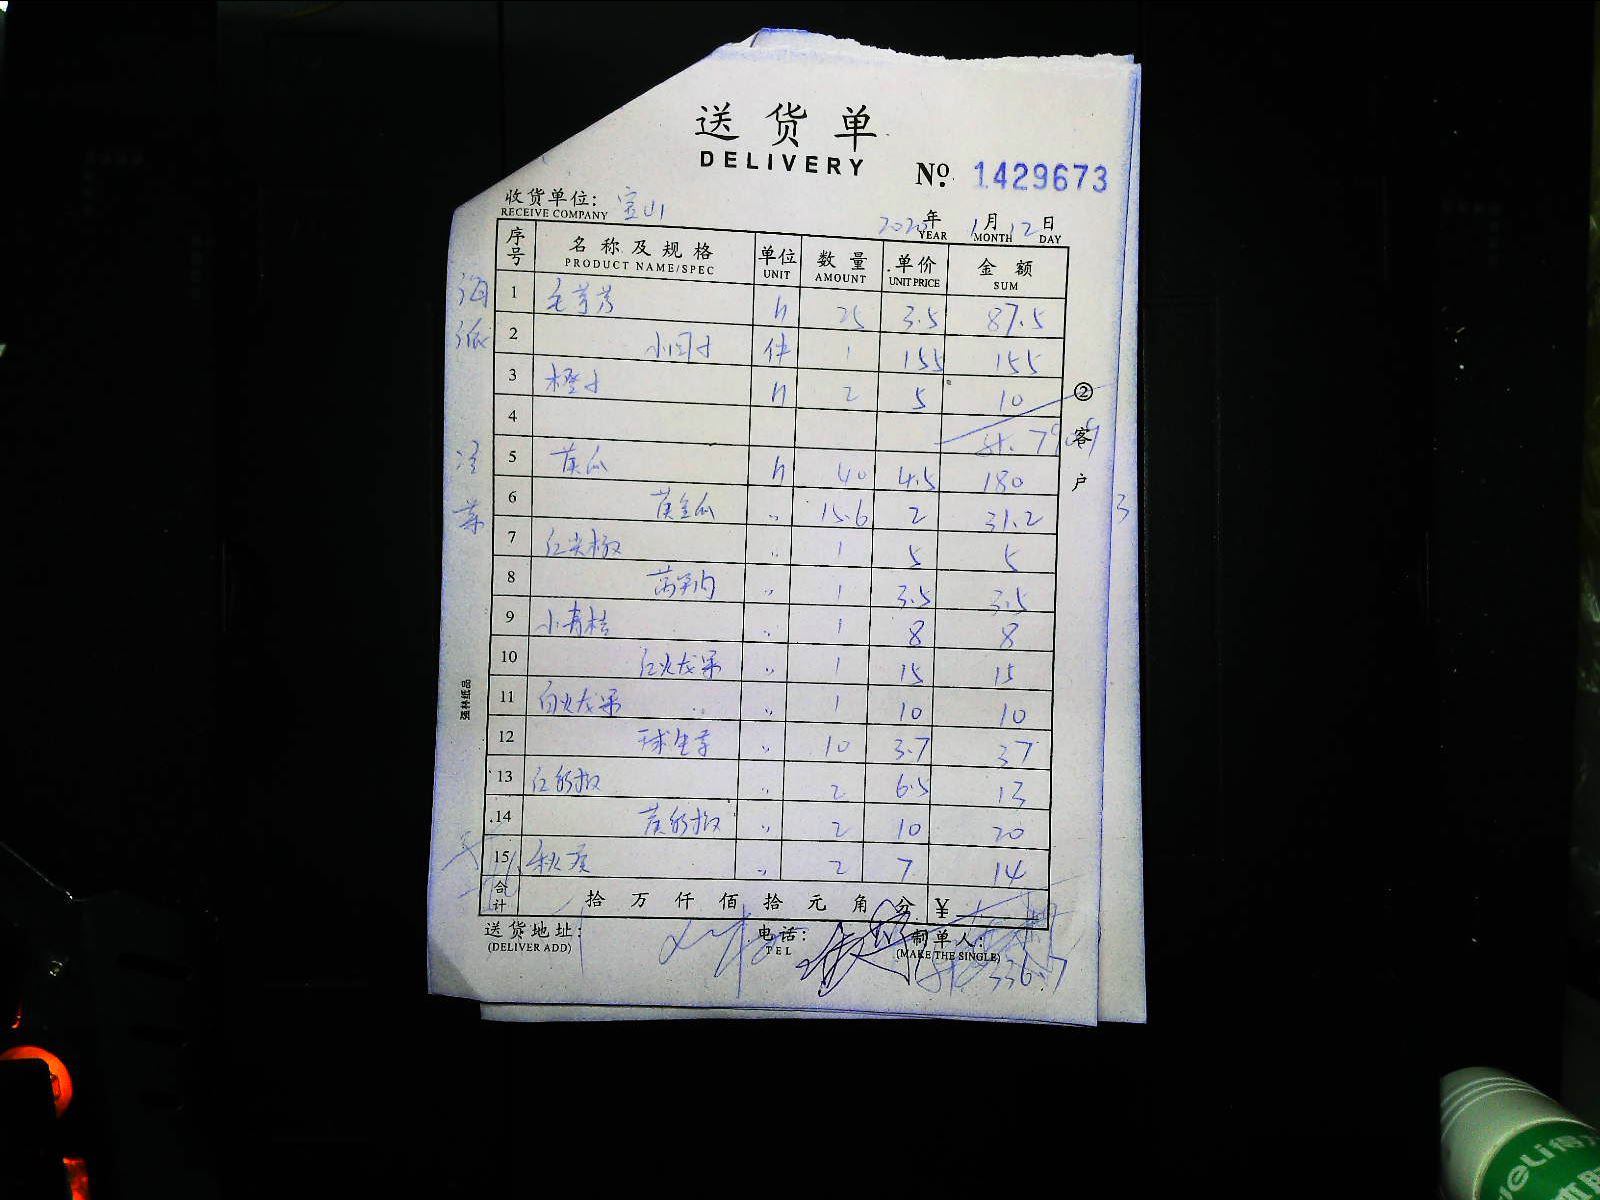 送货单
DELIVERY
No. 1429673
收货单位: 宝山
RECEIVE COMPANY
年 1月 12日
YEAR MONTH DAY
序号 名称及规格 单位 数量 单价 金额
PRODUCT NAME/SPEC UNIT AMOUNT UNIT PRICE SUM
1 毛芋艿 25 3.5 87.5
2 件 1 155 155
3 橙子 2 5 10
4
5 黄瓜 40 4.5 180
6 黄金瓜 〃 15.6 2 31.2
7 红尖椒 〃 1 5 5
8 〃 1 3.5 3.5
9 小青桔 〃 1 8 8
10 红火龙果 〃 1 15 15
11 白火龙果 〃 1 10 10
12 球生菜 〃 10 3.7 37
13 红彩椒 〃 2 6.5 13
14 黄彩椒 〃 2 10 20
15 秋葵 〃 2 7 14
合计 拾 万 仟 佰 拾 元 角 分 ¥
送货地址: 电话: 制单人:
(DELIVER ADD) TEL (MAKE THE SINGLE)
336.7
海派
冷菜
②客户
3
强林纸品
deli得力